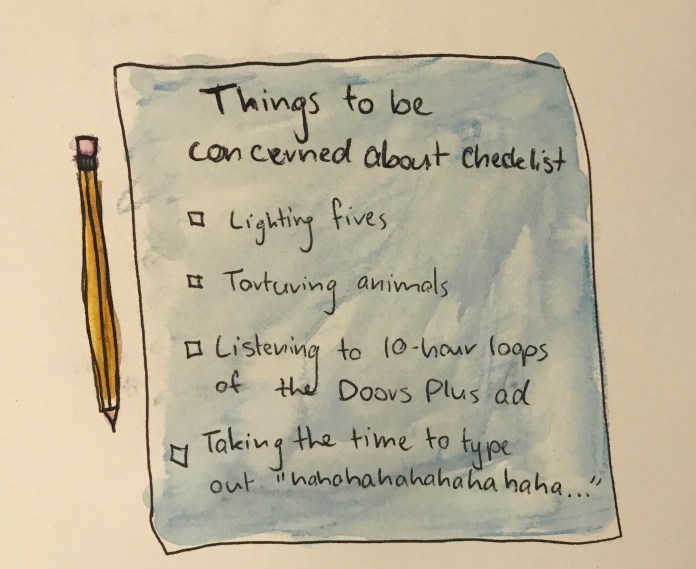 Things to be
concerned about checklist
Lighting fires
Torturing animals
Listening to 10-hour loops
of the Doors Plus ad
Taking the time to type
out "hahahahahahahahaha..."